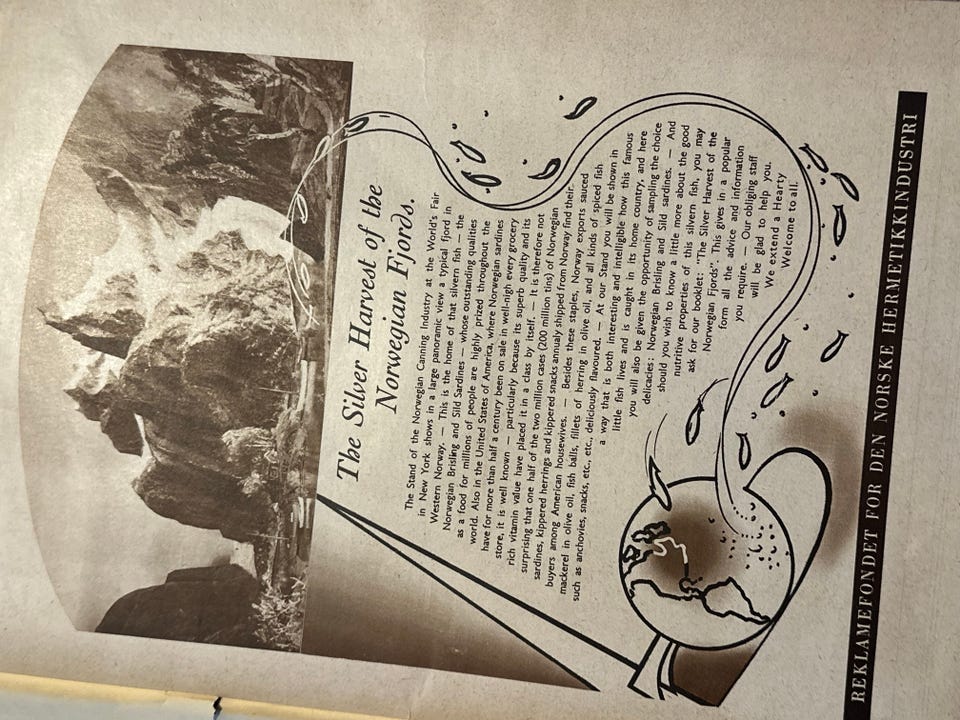 The Silver Harvest of the
Norwegian Fjords.
The Stand of the Norwegian Canning Industry at the World's Fair
in New York shows in a large panoramic view a typical fjord in
Western Norway. — This is the home of that silvern fish — the
Norwegian Brisling and Sild Sardines — whose outstanding qualities
as a food for millions of people are highly prized throughout the
world. Also in the United States of America, where Norwegian sardines
have for more than half a century been on sale in well-nigh every grocery
store, it is well known — particularly because its superb quality and its
rich vitamin value have placed it in a class by itself. — It is therefore not
surprising that one half of the two million cases (200 million tins) of Norwegian
sardines, kippered herrings and kippered snacks annualy shipped from Norway find their
buyers among American housewives. — Besides these staples, Norway exports sauced
mackerel in olive oil, fish balls, fillets of herring in olive oil, and all kinds of spiced fish
such as anchovies, snacks, etc., etc., deliciously flavoured. — At our Stand you will be shown in
a way that is both interesting and intelligible how this famous
little fish lives and is caught in its home country, and here
you will also be given the opportunity of sampling the choice
delicacies: Norwegian Brisling and Sild sardines. — And
should you wish to know a little more about the good
nutritive properties of this silvern fish, you may
ask for our booklet: "The Silver Harvest of the
Norwegian Fjords". This gives in a popular
form all the advice and information
you require. — Our obliging staff
will be glad to help you.
We extend a Hearty
Wellcome to all.
REKLAMEFONDET FOR DEN NORSKE HERMETIKKINDUSTRI